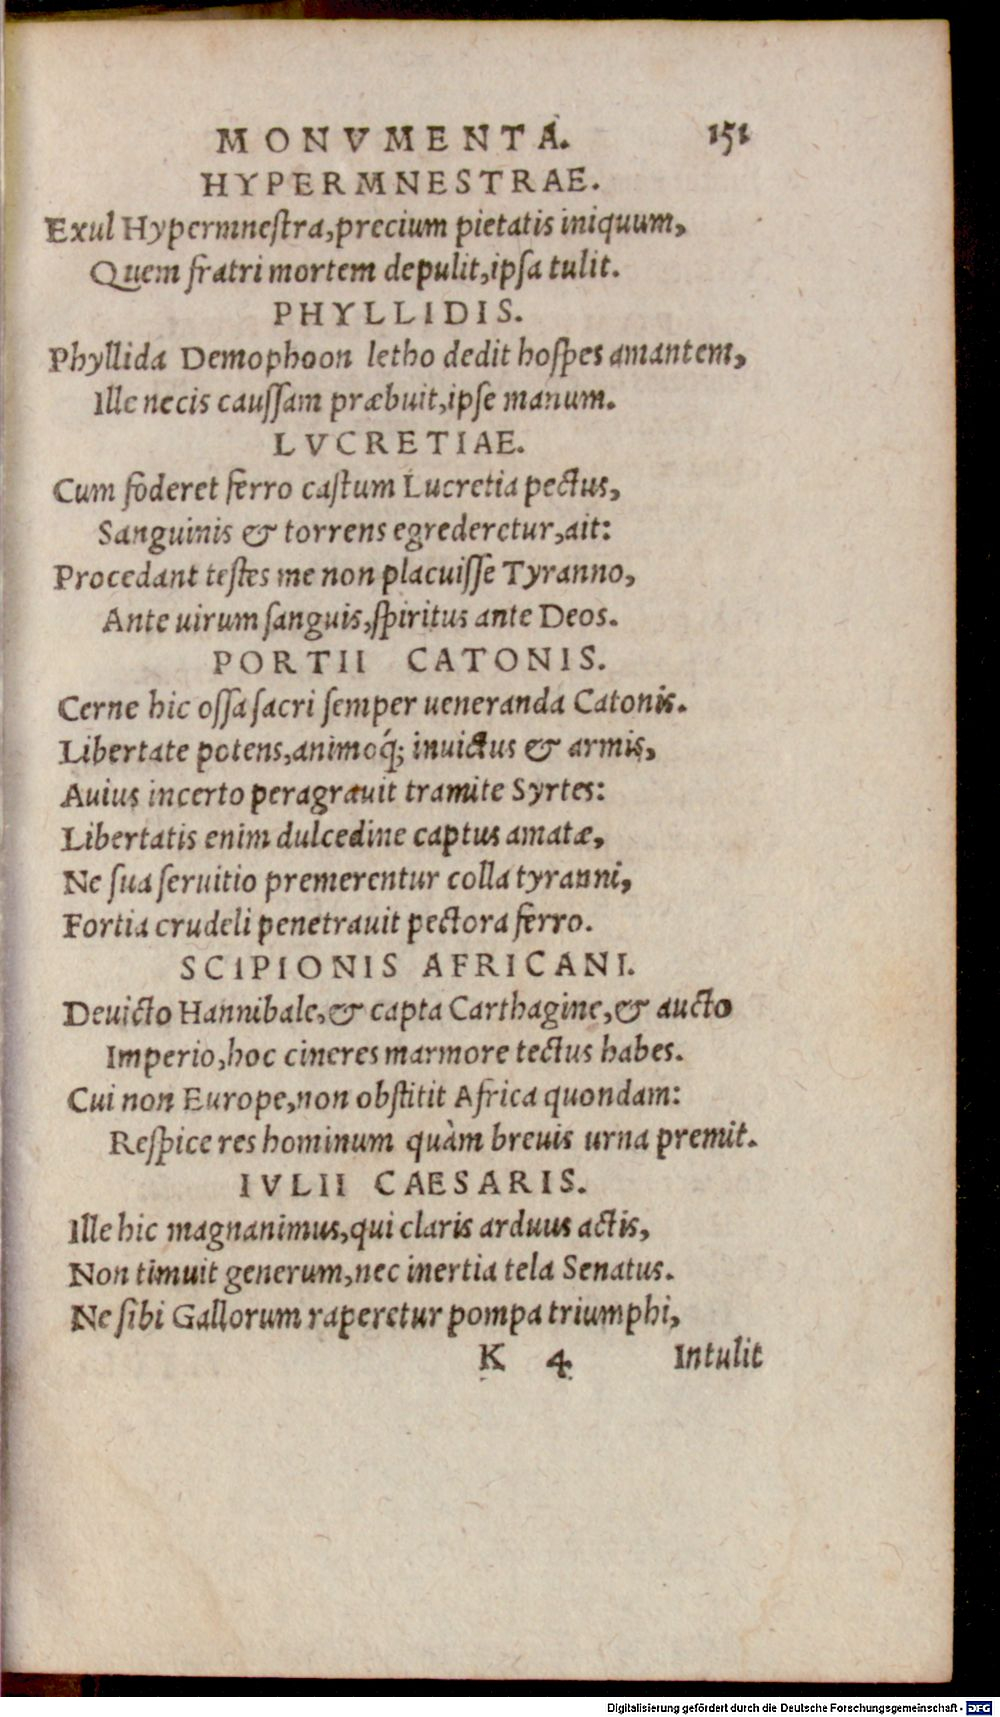 MONVMENTA. 151
HYPERMNESTRAE.
Exul Hypermnestra, precium pietatis iniquum,
Quem fratri mortem depulit, ipsa tulit.
PHYLLIDIS.
Phyllida Demophoon letho dedit hospes amantem,
Ille necis caussam præbuit, ipse manum.
LVCRETIAE.
Cum foderet ferro castum Lucretia pectus,
Sanguinis & torrens egrederetur, ait:
Procedant testes me non placuisse Tyranno,
Ante uirum sanguis, spiritus ante Deos.
PORTII CATONIS.
Cerne hic ossa sacri semper ueneranda Catonis.
Libertate potens, animoq́; inuictus & armis,
Auius incerto peragrauit tramite Syrtes:
Libertatis enim dulcedine captus amatæ,
Ne sua seruitio premerentur colla tyranni,
Fortia crudeli penetrauit pectora ferro.
SCIPIONIS AFRICANI.
Deuicto Hannibale, & capta Carthagine, & aucto
Imperio, hoc cineres marmore tectus habes.
Cui non Europe, non obstitit Africa quondam:
Respice res hominum quàm breuis urna premit.
IVLII CAESARIS.
Ille hic magnanimus, qui claris arduus actis,
Non timuit generum, nec inertia tela Senatus.
Ne sibi Gallorum raperetur pompa triumphi,
K 4 Intulit
Digitalisierung gefördert durch die Deutsche Forschungsgemeinschaft - DFG